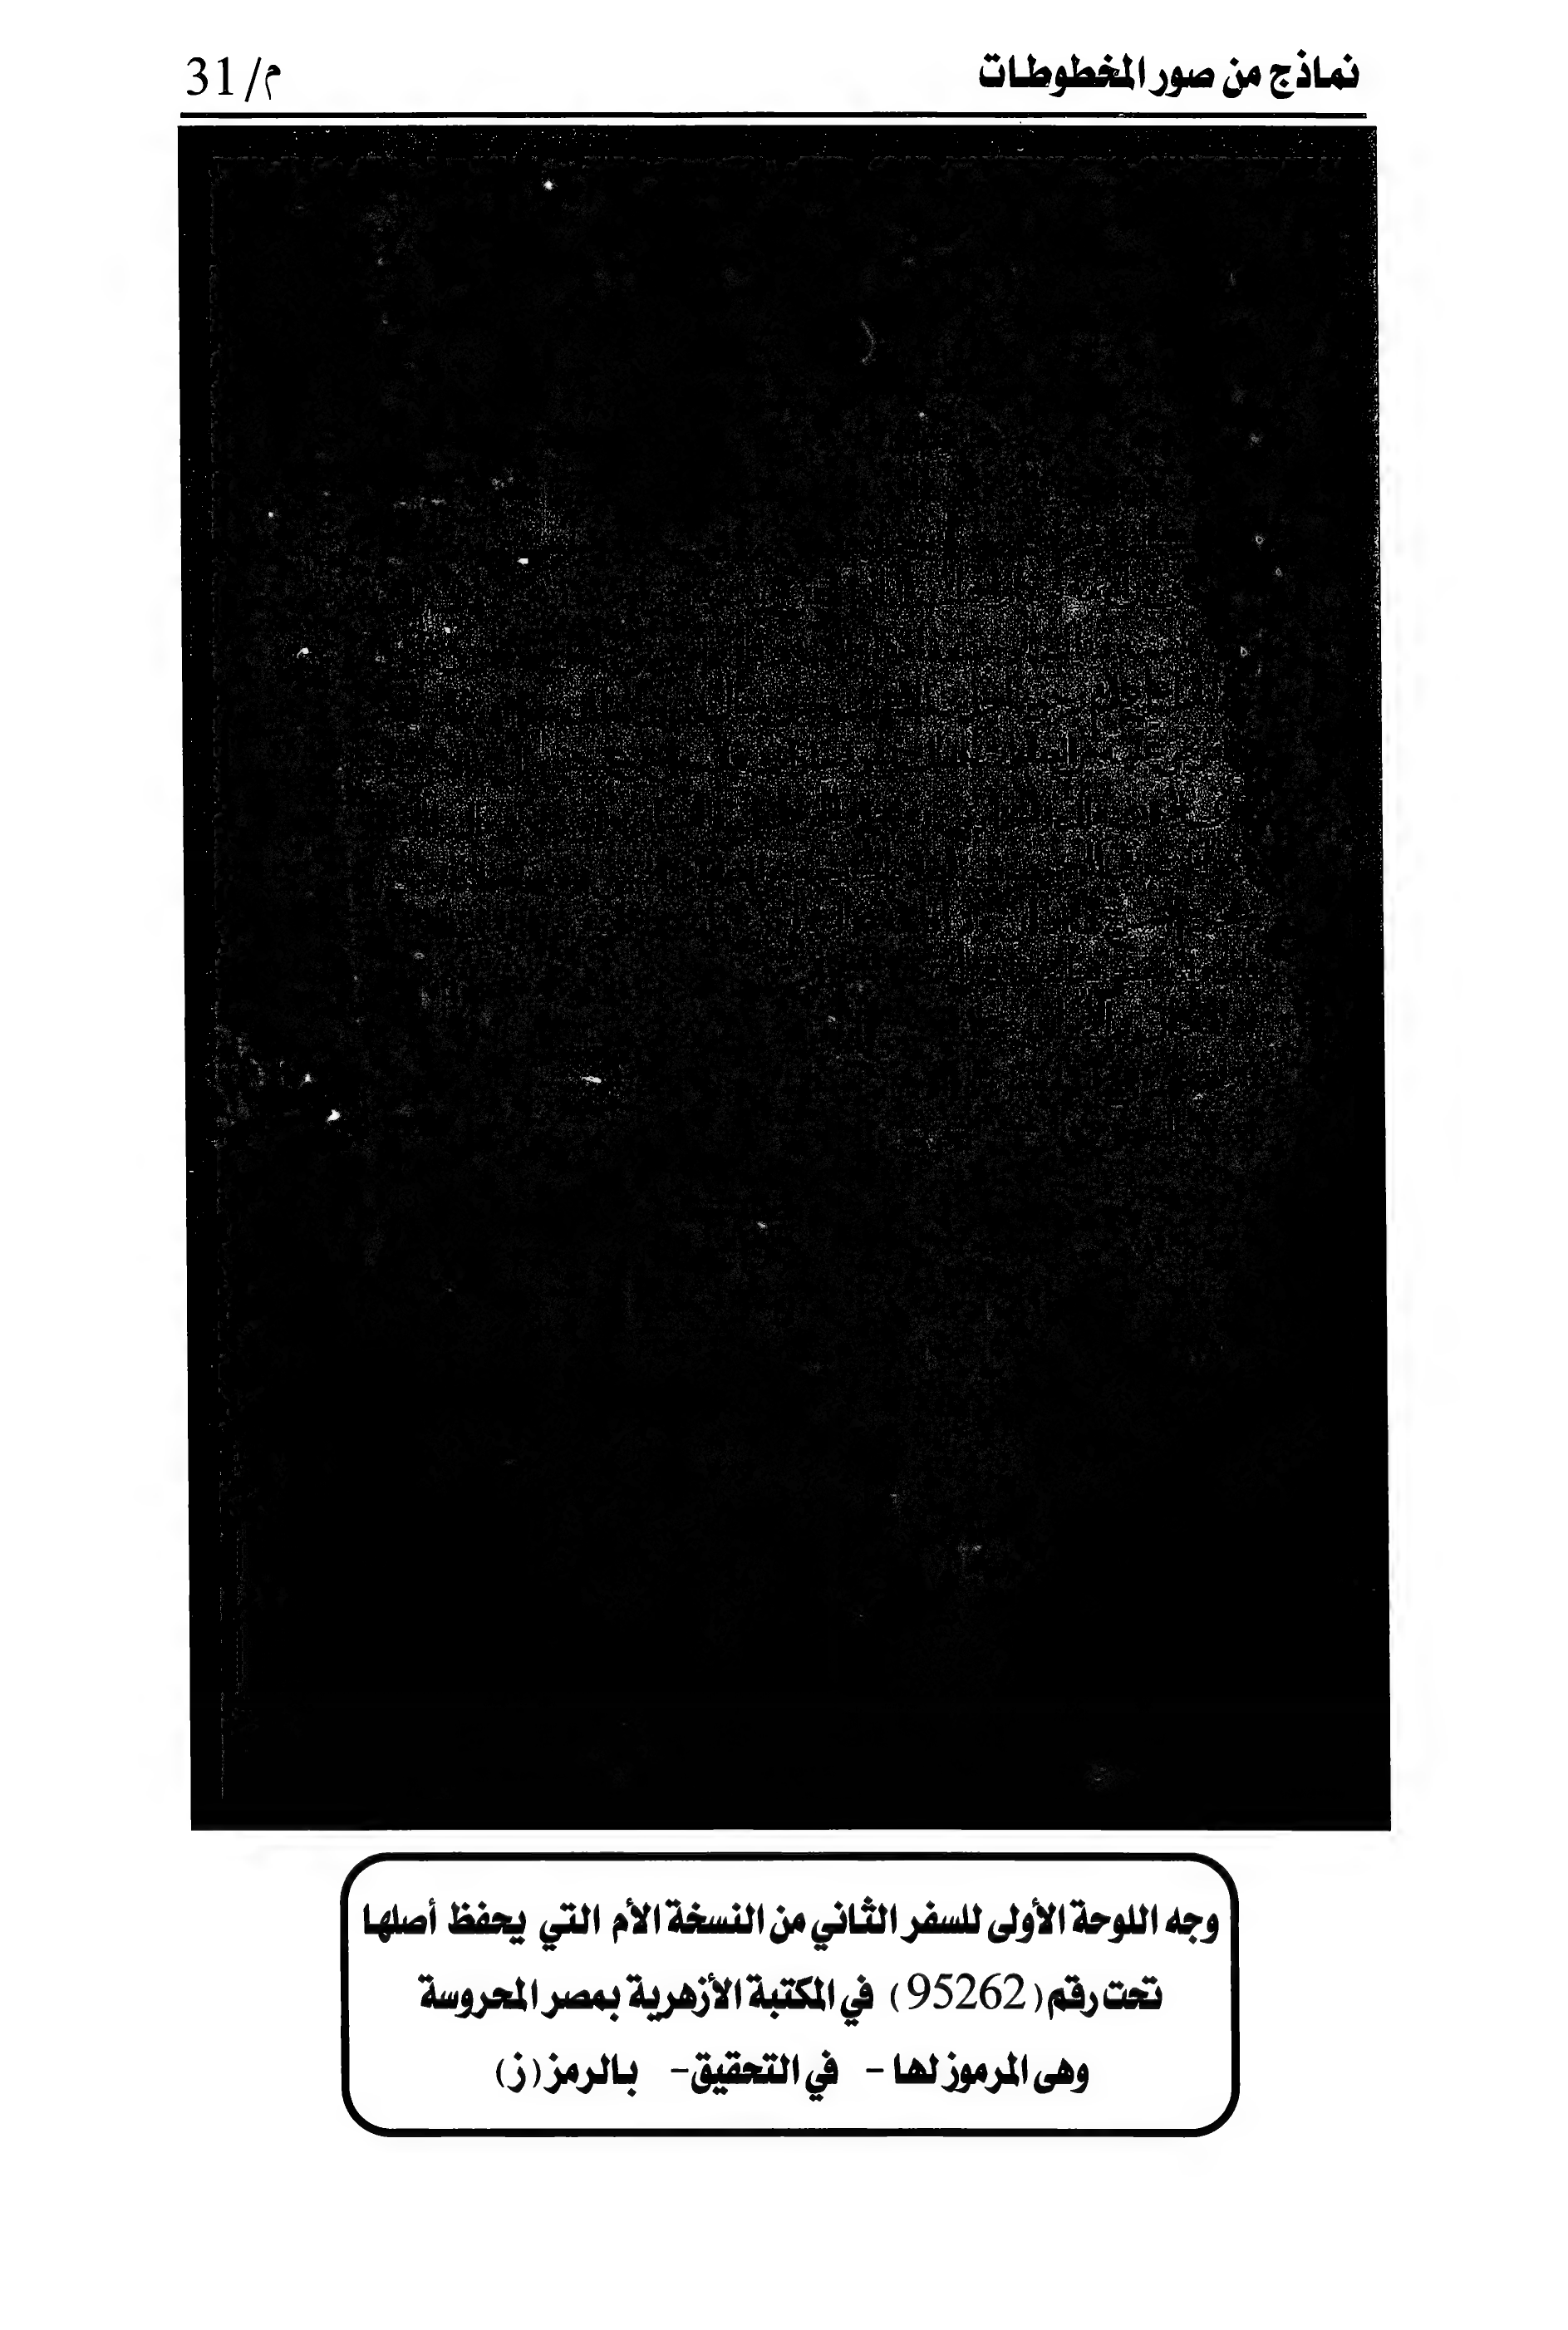 نماذج من صور المخطوطات م/31
وجه اللوحة الأولى للسفر الثاني من النسخة الأم التي يحفظ أصلها
تحت رقم (95262) في المكتبة الأزهرية بمصر المحروسة
وهى المرموز لها - في التحقيق - بالرمز (ز)